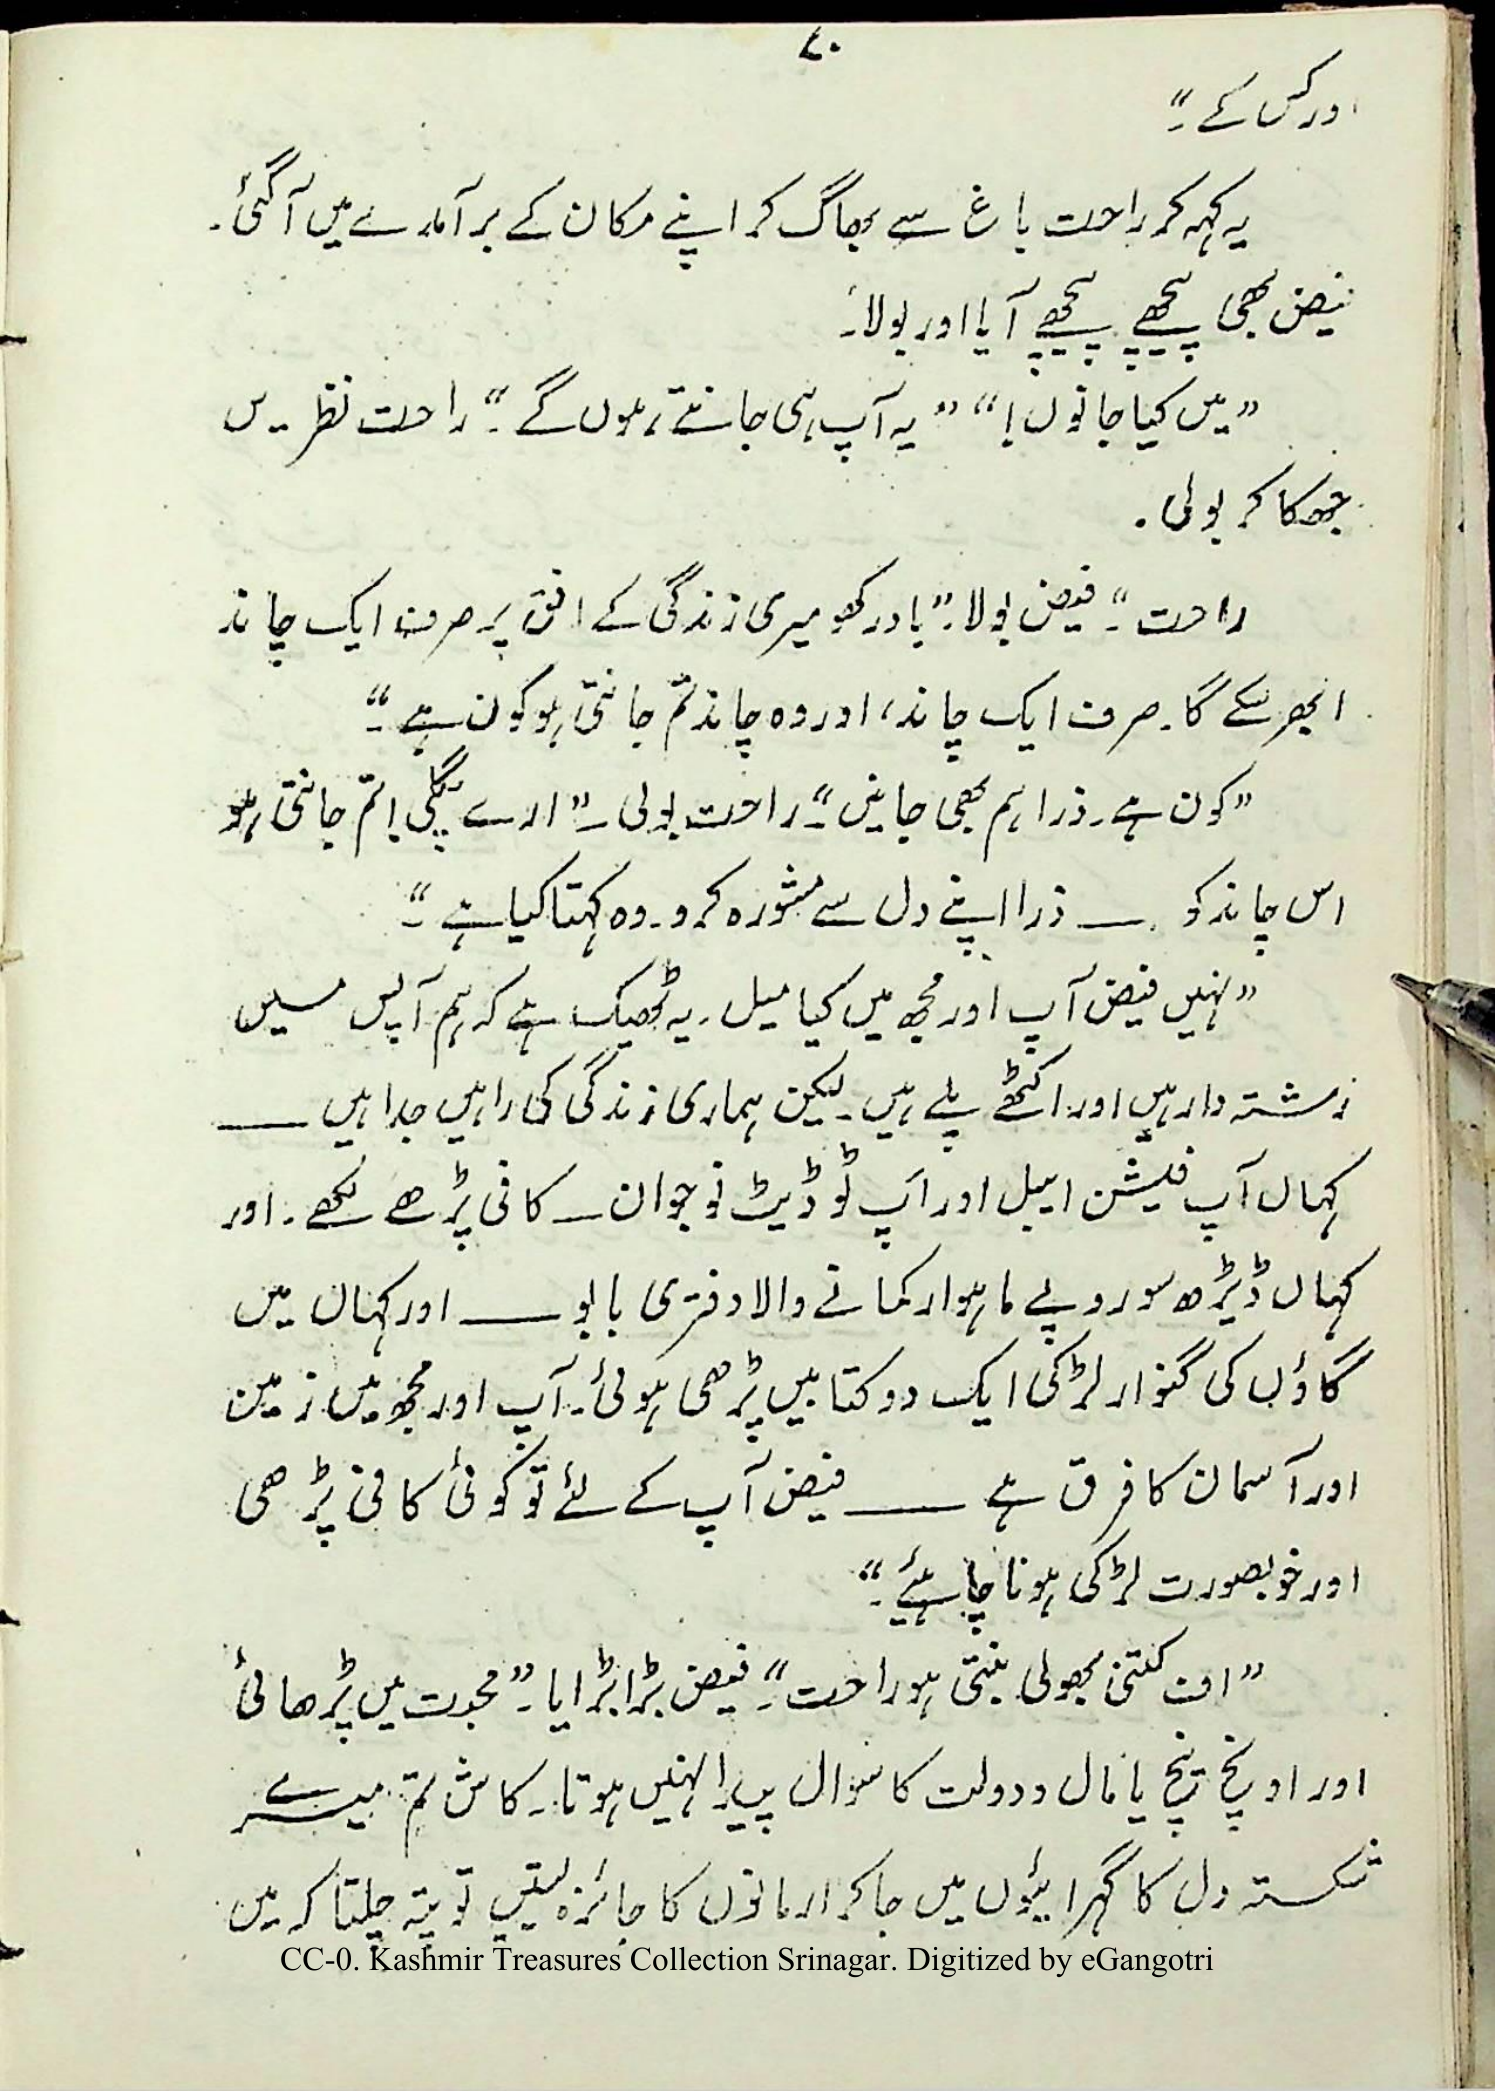 ۷۰
اور کس کے۔“
یہ کہہ کر راحت باغ سے بھاگ کر اپنے مکان کے برآمدے میں آگئی۔
فیض بھی پیچھے پیچھے آیا اور بولا۔
”میں کیا جانوں!“ ”یہ آپ ہی جانتے ہوں گے۔“ راحت نظریں
جھکا کر بولی۔
راحت“۔ فیض بولا۔ ”یاد رکھو میری زندگی کے افق پر صرف ایک چاند
ابھر سکے گا۔ صرف ایک چاند، اور وہ چاند تم جانتی ہو کون ہے۔“
”کون ہے۔ ذرا ہم بھی جانیں“۔ راحت بولی۔ ”ارے پگلی! تم جانتی ہو
اس چاند کو ـــ ذرا اپنے دل سے مشورہ کرو۔ وہ کہتا کیا ہے۔“
”نہیں فیض آپ اور مجھ میں کیا میل۔ یہ ٹھیک ہے کہ ہم آپس میں
رشتہ دار ہیں اور اکٹھے پلے ہیں۔ لیکن ہماری زندگی کی راہیں جدا ہیں ـــ
کہاں آپ فیشن ایبل اور اَپ ٹو ڈیٹ نوجوان ــ کافی پڑھے لکھے۔ اور
کہاں ڈیڑھ سو روپے ماہوار کمانے والا دفتری بابو ـــ اور کہاں میں
گاؤں کی گنوار لڑکی ایک دو کتابیں پڑھی ہوئی۔ آپ اور مجھ میں زمین
اور آسمان کا فرق ہے ـــ فیض آپ کے لئے تو کوئی کافی پڑھی
اور خوبصورت لڑکی ہونا چاہئیے۔“
”اف کتنی بھولی بنتی ہو راحت“۔ فیض بڑابڑایا۔ ”محبت میں پڑھائی
اور اونچ نیچ یا مال و دولت کا سوال پیدا نہیں ہوتا۔ کاش تم میرے
شکستہ دل کا گہرائیوں میں جا کر ارمانوں کا جائزہ لیتیں تو پتہ چلتا کہ میں
CC-0. Kashmir Treasures Collection Srinagar. Digitized by eGangotri